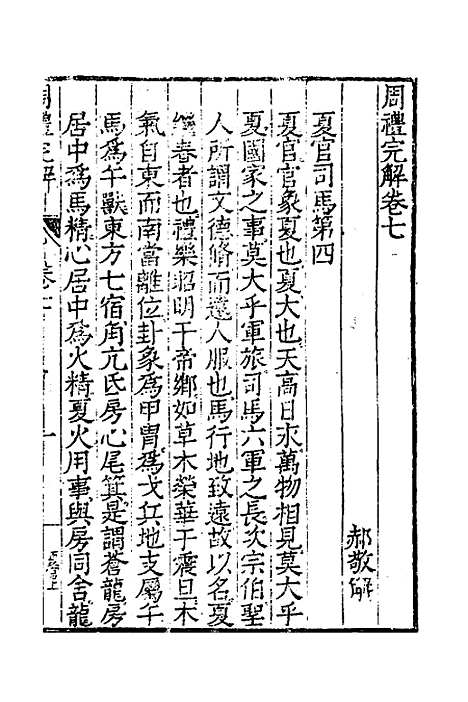 周禮完解卷七
郝敬解
夏官司馬第四
夏官官象夏也夏大也天高日永萬物相見莫大乎
夏國家之事莫大乎軍旅司馬六軍之長次宗伯聖
人所謂文德脩而遠人服也馬行地致遠故以名夏
繼春者也禮樂昭明于帝鄉如草木榮華于震旦木
氣自東而南當離位卦象為甲冑為戈兵地支屬午
馬為午獸東方七宿角亢氐房心尾箕是謂蒼龍房
居中為馬精心居中為火精夏火用事與房同舍龍
周禮完解
卷七